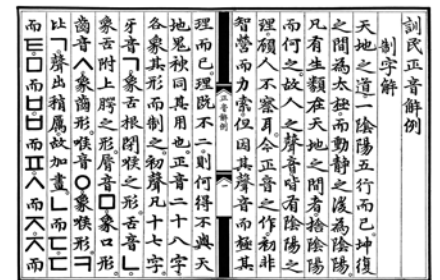 訓民正音解例
制字解
天地之道。一陰陽五行而已。坤復
之間為太極。而動靜之後為陰陽。
凡有生類在天地之間者。捨陰陽
而何之。故人之聲音。皆有陰陽之
理。顧人不察耳。今正音之作。初非
智營而力索。但因其聲音而極其
正音解例 一
理而已。理既不二。則何得不與天
地鬼神同其用也。正音二十八字。
各象其形而制之。初聲凡十七字。
牙音ㄱ。象舌根閉喉之形。舌音ㄴ。
象舌附上腭之形。脣音ㅁ。象口形。
齒音ㅅ。象齒形。喉音ㅇ。象喉形。ㅋ
比ㄱ。聲出稍厲。故加畫。ㄴ而ㄷ。ㄷ
而ㅌ。ㅁ而ㅂ。ㅂ而ㅍ。ㅅ而ㅈ。ㅈ而